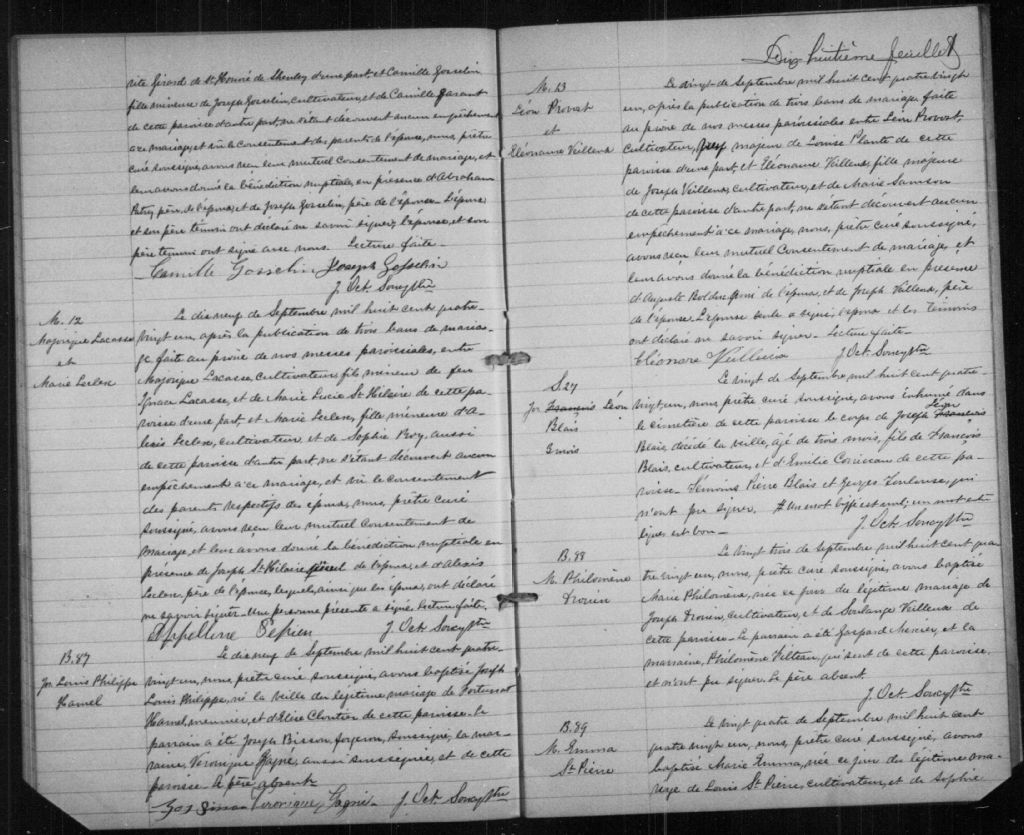 rite Girard de St Honoré de Shenley d'une part et Camille Gosselin
fille mineure de Joseph Gosselin, cultivateur, et de Camille Garant
de cette paroisse d'autre part, ne s'étant découvert aucun empêchement
à ce mariage, et vu le consentement des parents de l'épouse, nous, prêtre
curé soussigné, avons reçu leur mutuel Consentement de mariage, et
leur avons donné la bénédiction nuptiale, en présence d'Abraham
père de l'époux, et de Joseph Gosselin, père de l'épouse. L'époux
et son père témoin ont déclaré ne savoir signer, l'épouse, et son
père témoin ont signé avec nous. Lecture faite.
Camille Gosselin Joseph Gosselin
J. Oct. Soucy Ptre
M. 12
Majorique Lacasse
et
Marie Leclerc
Le dix neuf de Septembre mil huit cent quatre-
vingt un, après la publication de trois bans de maria-
ge faite au prône de nos messes paroissiales, entre
Majorique Lacasse, cultivateur, fils mineur de feu
Ignace Lacasse, et de Marie Lucie St Hilaire de cette pa-
roisse d'une part, et Marie Leclerc, fille mineure d'A-
lexis Leclerc, cultivateur, et de Sophie Roy, aussi
de cette paroisse d'autre part, ne s'étant découvert aucun
empêchement à ce mariage, et vu le consentement
des parents respectifs des époux, nous, prêtre curé
soussigné, avons reçu leur mutuel Consentement de
mariage, et leur avons donné la bénédiction nuptiale en
présence de Joseph St Hilaire de l'époux, et d'Alexis
Leclerc, père de l'épouse, lesquels, ainsi que les époux, ont déclaré
ne savoir signer. Une personne présente a signé. Lecture faite.
J. Oct. Soucy Ptre
B. 87
Jos Louis Philippe
Hamel
Le dix neuf de Septembre mil huit cent quatre-
vingt un, nous prêtre curé soussigné, avons baptisé Joseph
Louis Philippe, né la veille du légitime mariage de Fortunat
Hamel, meunier, et d'Elise Cloutier de cette paroisse. Le
parrain a été Joseph Bisson, forgeron, soussigné, la mar-
raine, Véronique Gagné, aussi soussignée, et de cette
paroisse. Le père absent.
Jos Bisson Veronique Gagné J. Oct. Soucy Ptre
Dix huitième feuillet
M. 13
Léon Provost
et
Eléonaire Veilleux
Le vingt de Septembre mil huit cent quatre vingt
un, après la publication de trois bans de mariage faite
au prône de nos messes paroissiales entre Léon Provost,
cultivateur, majeur de Louise Plante de cette
paroisse d'une part, et Eléonaire Veilleux, fille majeure
de Joseph Veilleux, cultivateur, et de Marie Samson
de cette paroisse d'autre part, ne s'étant découvert aucun
empêchement à ce mariage, nous, prêtre curé soussigné,
avons reçu leur mutuel Consentement de mariage, et
leur avons donné la bénédiction nuptiale en présence
d'Auguste Bolduc, ami de l'époux, et de Joseph Veilleux, père
de l'épouse. L'épouse seule a signé, l'époux et les témoins
ont déclaré ne savoir signer. Lecture faite.
Eléonore Veilleux J. Oct. Soucy Ptre
S 27
Jos François Léon
Blais
3 mois
Le vingt de Septembre mil huit cent quatre-
vingt un, nous prêtre curé soussigné, avons inhumé dans
le cimetière de cette paroisse le corps de Joseph François Léon
Blais, décédé la veille, âgé de trois mois, fils de François
Blais, cultivateur, et d'Emilie de cette pa-
roisse. Témoins Pierre Blais et Georges Toulouse, qui
n'ont pu signer. # Un mot biffé est nul; un mot inter-
ligné est bon.
J. Oct. Soucy Ptre
B. 88
M. Philomène
Drouin
Le vingt trois de Septembre mil huit cent qua-
tre vingt un, nous, prêtre curé soussigné, avons baptisé
Marie Philomène, née ce jour du légitime mariage de
Joseph Drouin, cultivateur, et de Soulange Veilleux de
cette paroisse. Le parrain a été Gaspard Mercier, et la
marraine, Philomène qui sont de cette paroisse,
et n'ont pu signer. Le père absent.
J. Oct. Soucy Ptre
B. 89
M. Emma
St Pierre
Le vingt quatre de Septembre mil huit cent
quatre vingt un, nous, prêtre curé soussigné, avons
baptisé Marie Emma, née ce jour du légitime ma-
riage de Louis St Pierre, cultivateur, et de Sophie